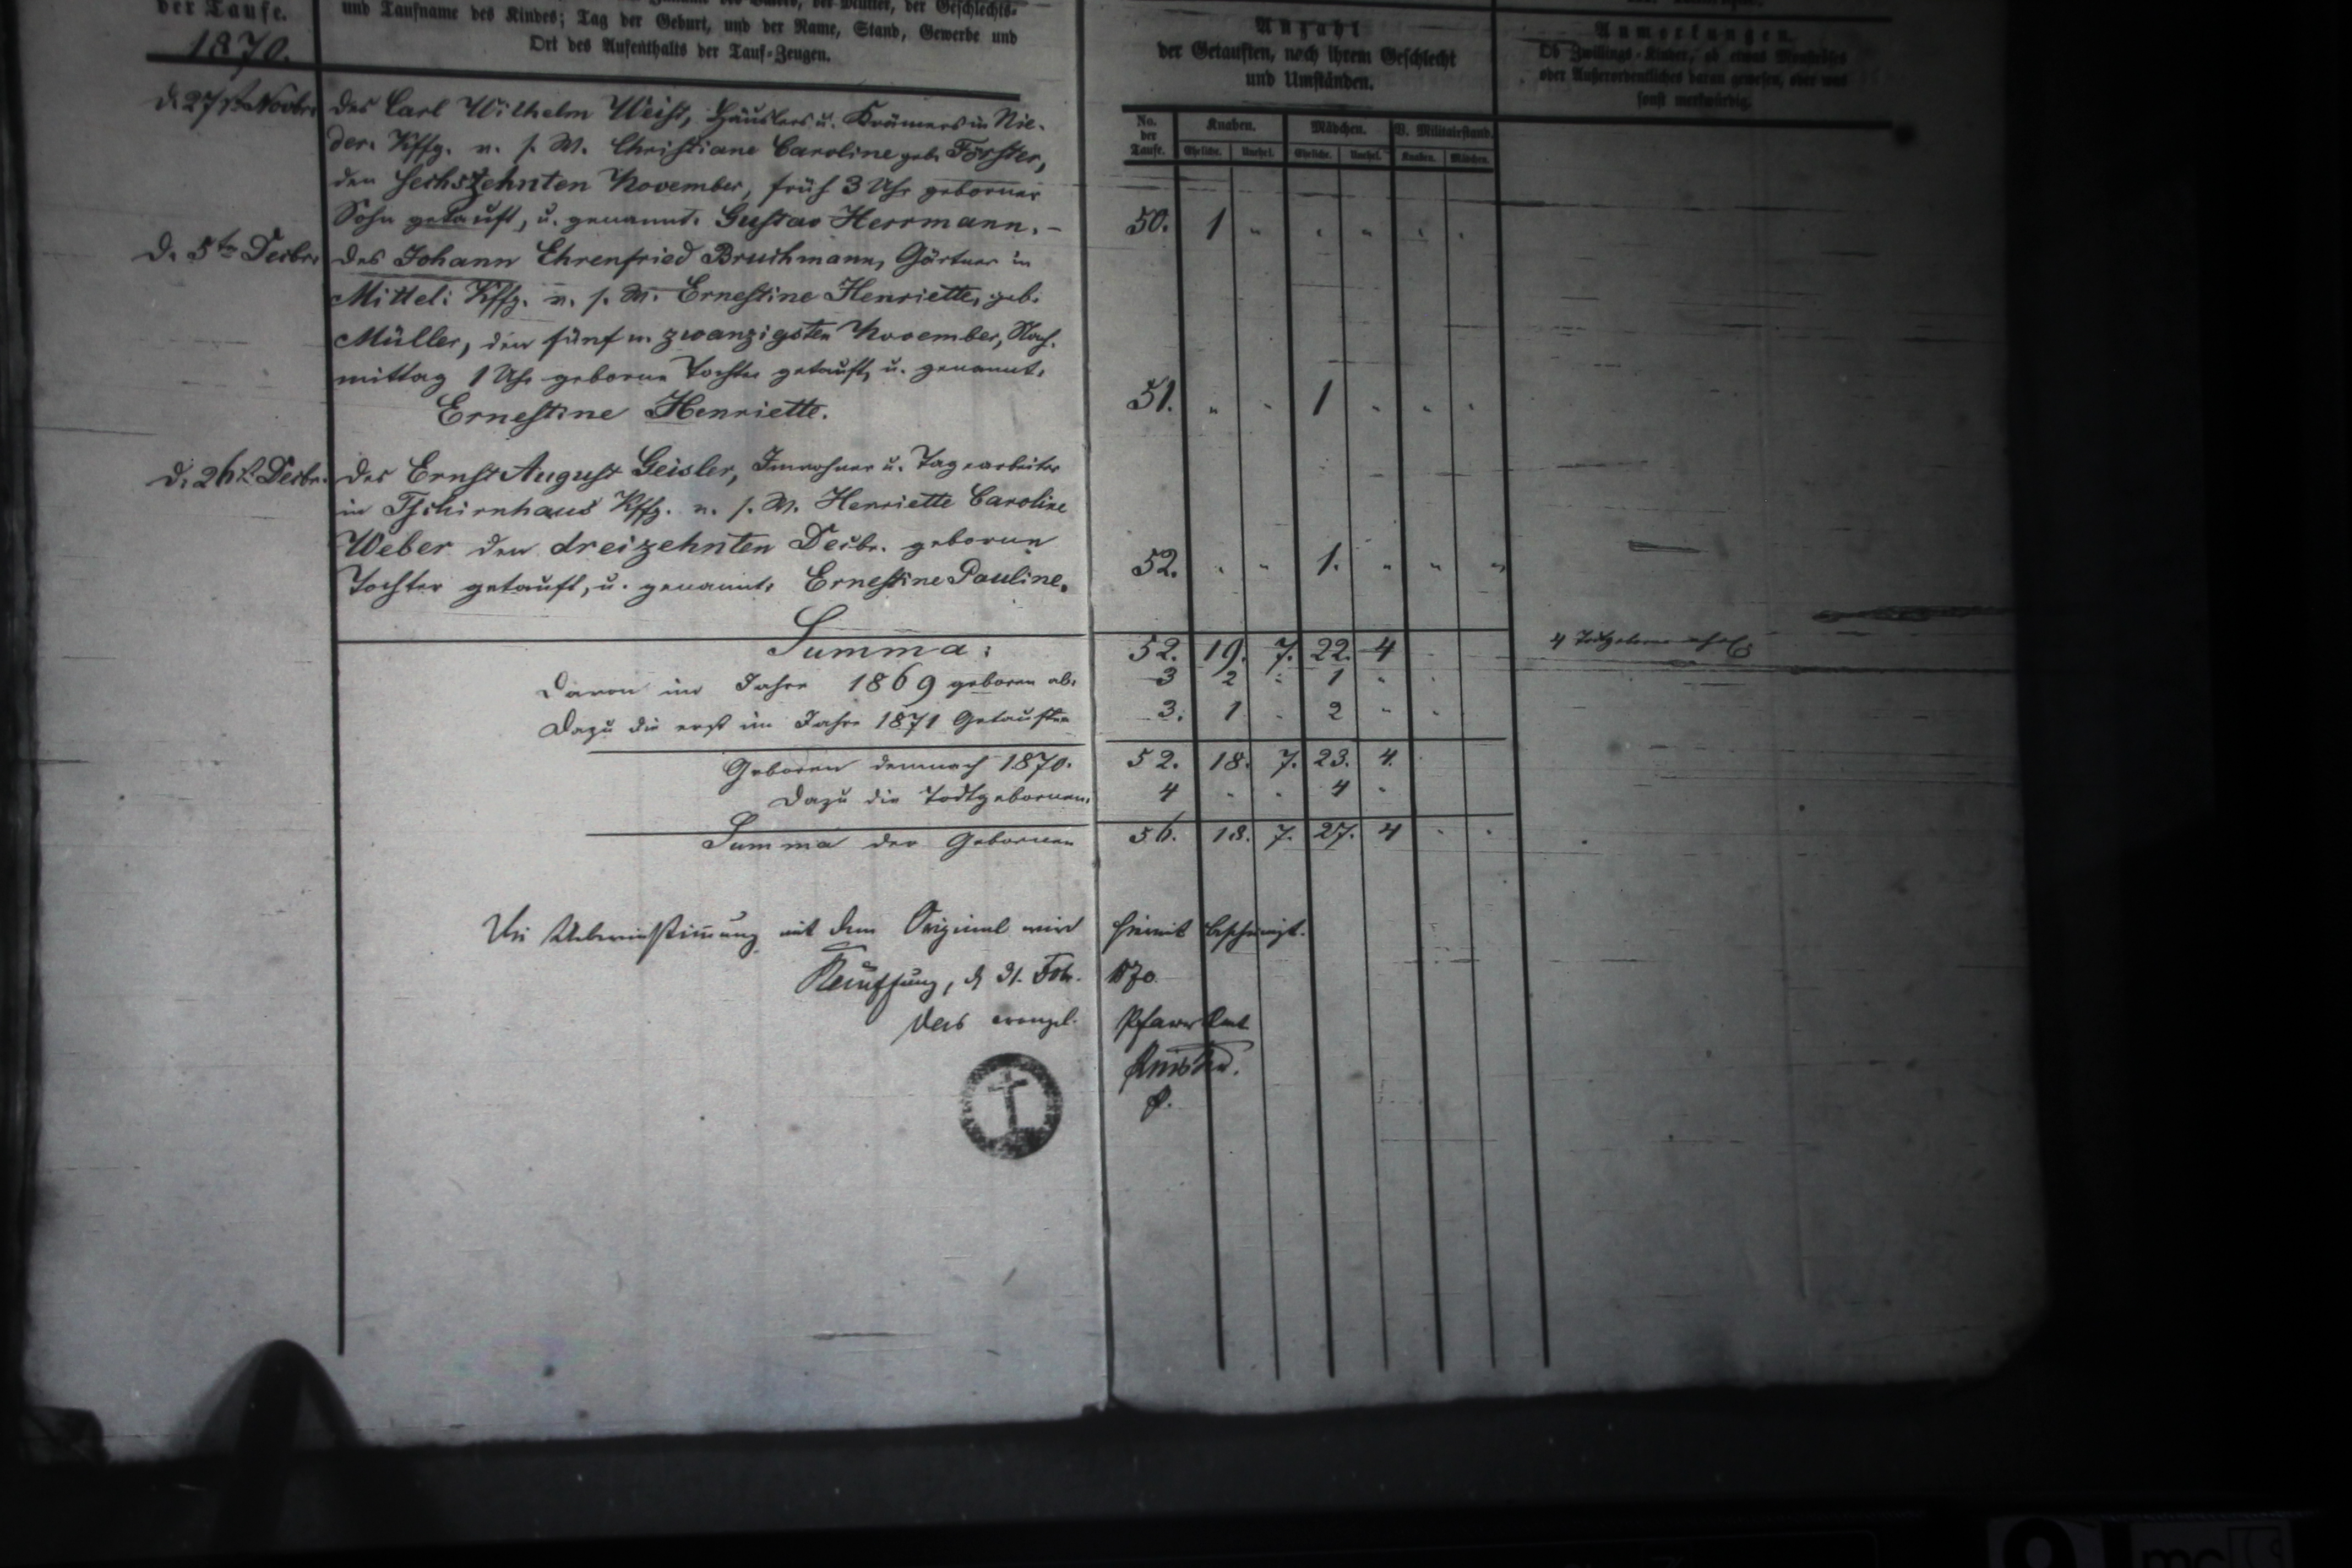 der Taufe.
1870.
und Taufname des Kindes; Tag der Geburt, und der Name, Stand, Gewerbe und
Ort des Aufenthalts der Tauf-Zeugen.
Anzahl
der Getauften, nach ihrem Geschlecht
und Umständen.
Anmerkungen.
Ob Zwillings-Kinder, ob etwas Monströses
oder Außerordentliches daran gewesen, oder was
sonst merkwürdig.
No. der Taufe. Knaben. Mädchen. V. Militairstand.
Eheliche. Unehel. Eheliche. Unehel. Knaben. Mädchen.
d. 27st. Novbr. des Carl Wilhelm Weist, Häuslers u. Krämers in Nie-
der. Kffg. u. s. W. Christiane Caroline geb. Förster,
den sechszehnten November, früh 3 Uhr geborner
Sohn getauft, u. genannt. Gustav Herrmann. – 50. 1 " " " " "
d. 5ten Decbr. des Johann Ehrenfried Bruchmann, Gärtner in
Mittel: Kffg. u. s. W. Ernestine Henriette, geb.
Müller, den fünf u. zwanzigsten November, Nach-
mittag 1 Uhr geborne Tochter getauft, u. genannt.
Ernestine Henriette. 51. " " 1 " " "
d. 26st. Decbr. des Ernst August Geisler, Inwohner u. Tagearbeiter
in Tschirnhaus Kffg. u. s. W. Henriette Caroline
Weber den dreizehnten Decbr. geborne
Tochter getauft, u. genannt. Ernestine Pauline. 52. " " 1. " " "
Summa: 52. 19. 7. 22. 4 4 Todtgeborene
Davon im Jahre 1869 geboren ab. 3 2 " 1 "
Dazu die erst im Jahre 1871 Getauften 3. 1 " 2 "
Geboren demnach 1870. 52. 18. 7. 23. 4.
Dazu die Todtgebornen. 4 " " 4 "
Summa der Gebornen 56. 18. 7. 27. 4
Die Uebereinstimmung mit dem Original wird hiermit bescheinigt.
Kauffung, d. 31. 1870.
Das evangel. Pfarr Amt